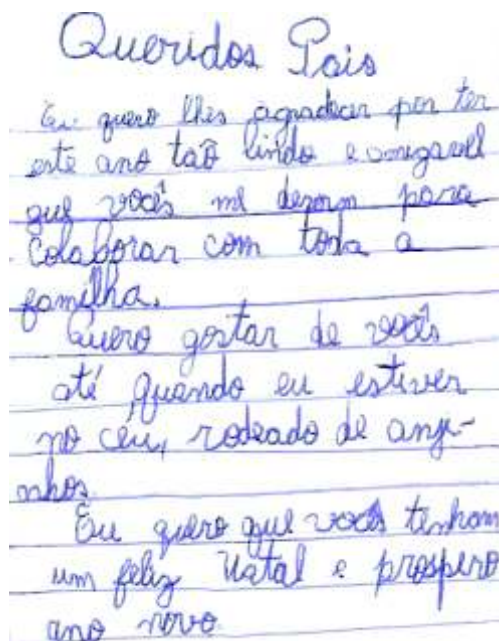 Queridos Pais
Eu quero lhes agradecer por ter
este ano taõ lindo e amigavell
que vocês me deram para
colaborar com toda a
familha.
Quero gostar de vocês
até quando eu estiver
no céu, rodeado de anji-
nhos
Eu quero que vocês tenham
um feliz Natal e prospero
ano novo